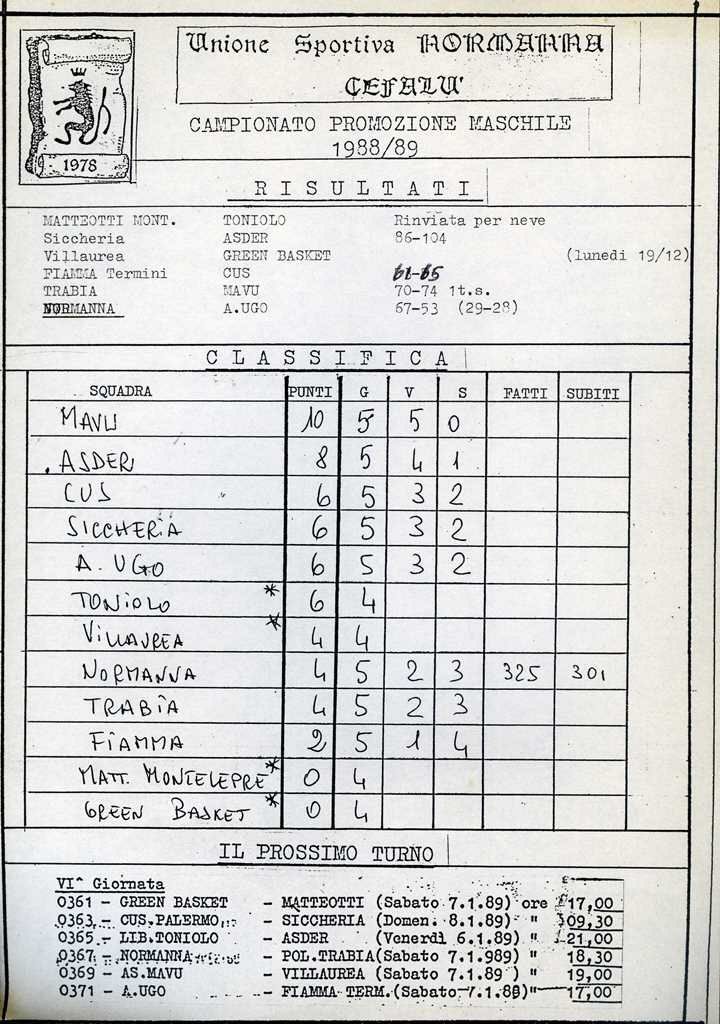 Unione Sportiva NORMANNA
CEFALU'
1978
CAMPIONATO PROMOZIONE MASCHILE
1988/89
RISULTATI
MATTEOTTI MONT. TONIOLO Rinviata per neve
Siccheria ASDER 86-104
Villaurea GREEN BASKET (lunedi 19/12)
FIAMMA Termini CUS 61-65
TRABIA MAVU 70-74 1t.s.
NORMANNA A.UGO 67-53 (29-28)
CLASSIFICA
SQUADRA PUNTI G V S FATTI SUBITI
MAVU 10 5 5 0
.ASDER 8 5 4 1
CUS 6 5 3 2
SICCHERIA 6 5 3 2
A. UGO 6 5 3 2
TONIOLO * 6 4
VILLAUREA * 4 4
NORMANNA 4 5 2 3 325 301
TRABIA 4 5 2 3
FIAMMA 2 5 1 4
MATT. MONTELEPRE * 0 4
GREEN BASKET * 0 4
IL PROSSIMO TURNO
VI^ Giornata
0361 - GREEN BASKET - MATTEOTTI (Sabato 7.1.89) ore 17,00
0363 - CUS.PALERMO - SICCHERIA (Domen. 8.1.89) " 09,30
0365 - LIB.TONIOLO - ASDER (Venerdì 6.1.89) " 21,00
0367 - NORMANNA - POL.TRABIA(Sabato 7.1.989) " 18,30
0369 - AS.MAVU - VILLAUREA (Sabato 7.1.89 ) " 19,00
0371 - A.UGO - FIAMMA TERM.(Sabato 7.1.89)" 17,00